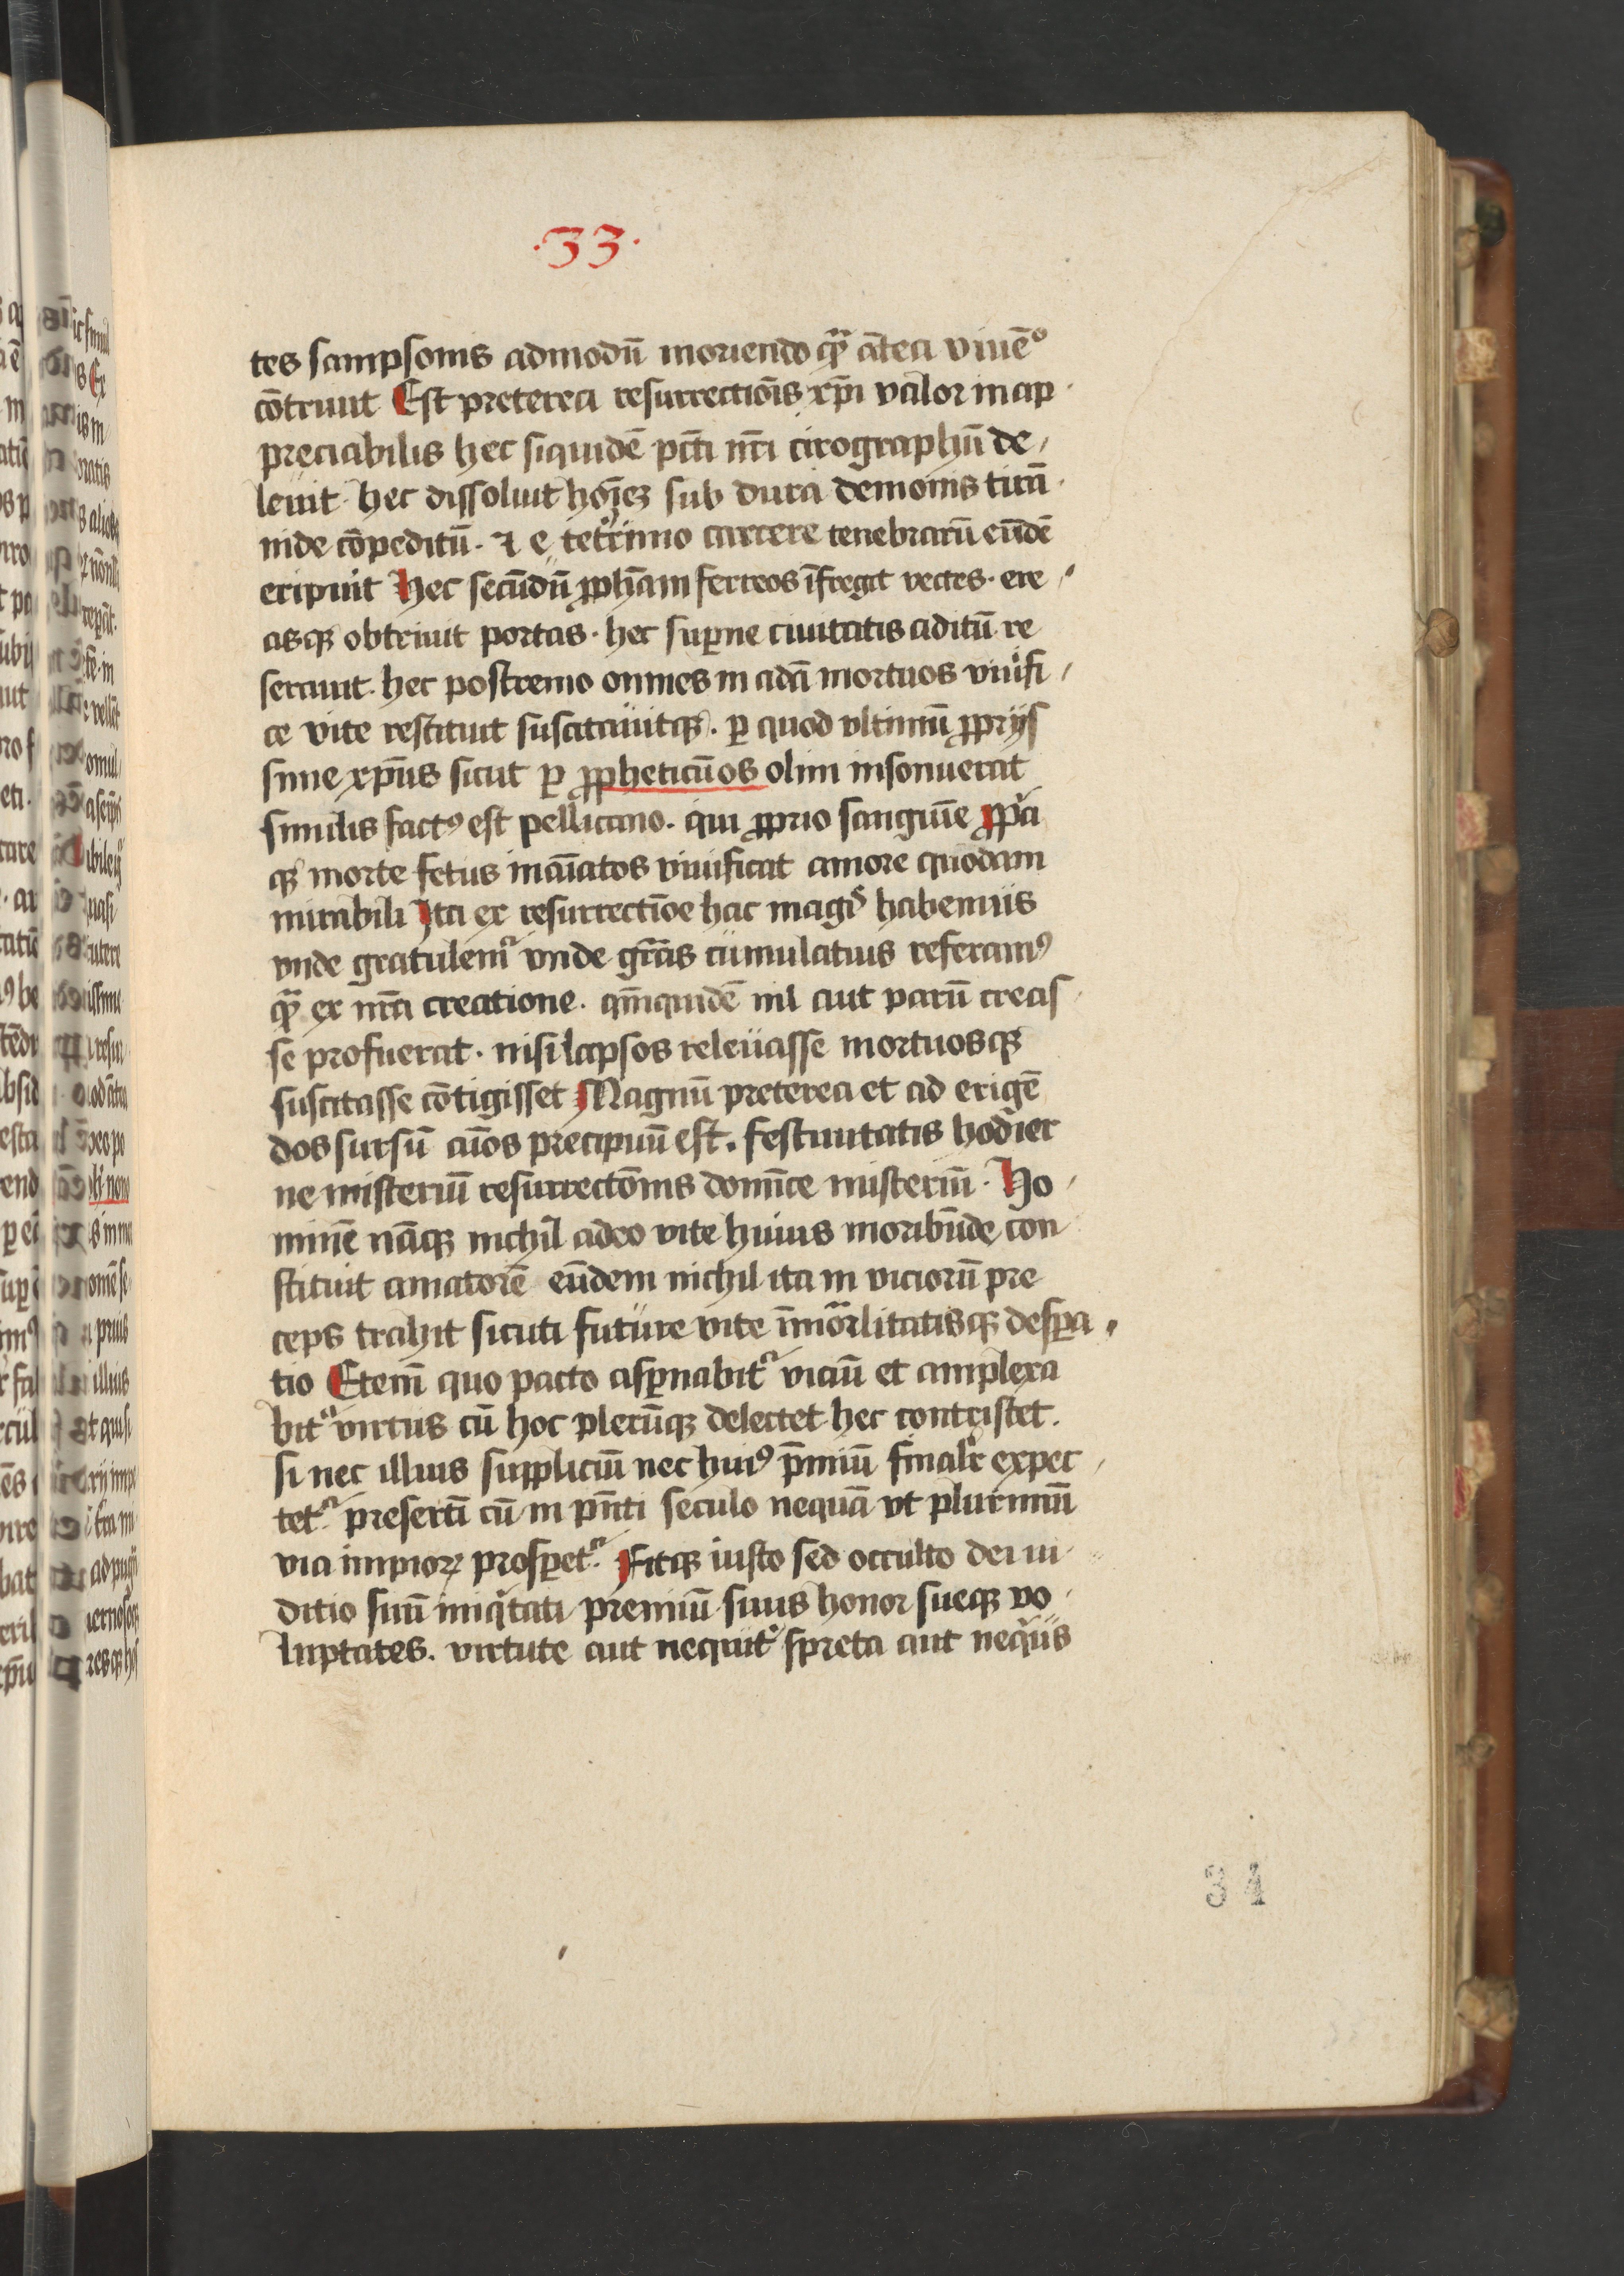 ·33·
tes sampsonis admodū moriendo qᷓ añtea viuēᵒ
cōtriuit Est preterea resurrectiōis xp̄i valor inap
preciabilis hec siquidē pctī nr̄i cirographū de
leuit· hec dissoluit hoīēꝫ sub dura demonis tirā
nide cōpeditū· ⁊ e tetͥrimo carcere tenebrarū eūdē
eripuit Hec secūdū ꝓph̄iam ferreos īfregit vectes· ere
asqꝫ obtriuit portas· hec suꝑne ciuitatis aditū re
serauit· hec postremo omnes in adā mortuos viuifi
ce vite restituit suscitauitqꝫ· ꝑ quod vltimū ꝓprijs
sime xp̄us sicut ꝑ ꝓpheticū os olim insonuerat
similis factꝰ est pellicano· qui ꝓprio sanguīe ꝓpͥa
qꝫ morte fetus inaīatos viuificat amore quodam
mirabili Ita ex resurrectiōe hac magͥs habemus
vnde gratulemͬ vnde gr̄as cumulatius referamꝰ
qᷓ ex nr̄a creatione· qm̄quidē nil aut parū creas
se profuerat· nisi lapsos releuasse mortuosqꝫ
suscitasse cōtigisset Magnū preterea et ad erigē
dos sursū aīos precipuū est· festiuitatis hodier
ne misteriū resurrectōnis domīce misteriū· Ho
minē nāqꝫ nichil adeo vite huius moribūde con
stituit amatorē eūdem nichil ita in viciorū pre
ceps trahit sicuti future vite īmorᷓlitatisqꝫ desꝑa
tio Etenī quo pacto asꝑnabitͬ viciū et amplexa
bitͬ virtus cū hoc plerūqꝫ delectet hec contristet·
si nec illius suppliciū nec huiꝰ p̄miū finalr̄ expec
tetͬ· presertī cū in pn̄ti seculo nequā vt plurimū
via impioꝝ prosꝑetͬ· Fitqꝫ iusto sed occulto dei iu
ditio suū iniqͥtati premiū suus honor sueqꝫ vo
luptates· virtute aut nequitͥ spreta aut neqͥus
34